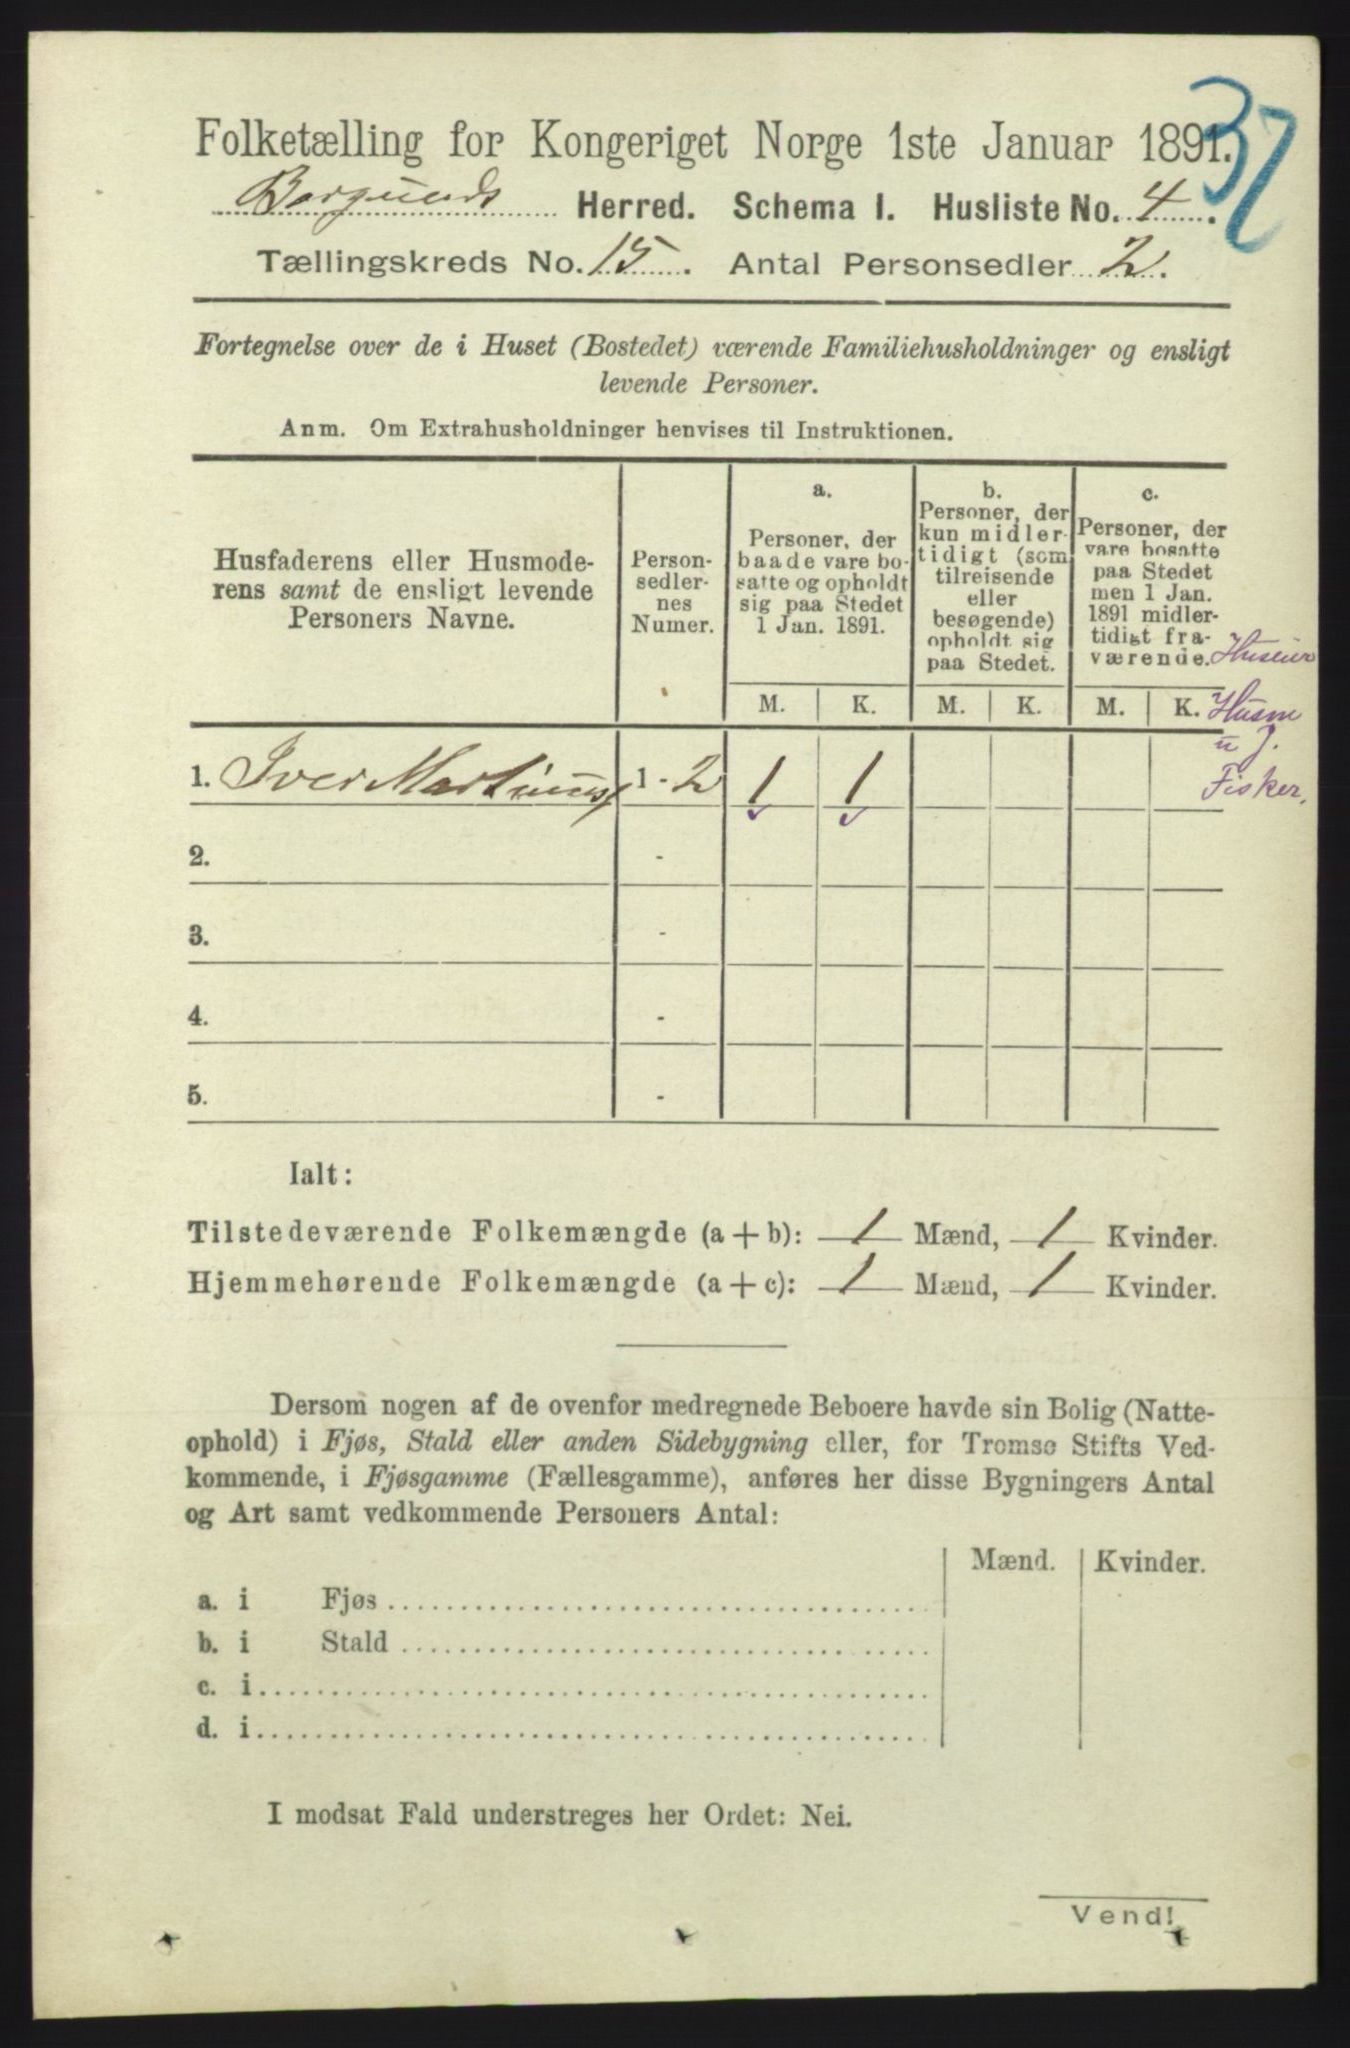 32
Folketælling for Kongeriget Norge 1ste Januar 1891.
Borgunds Herred. Schema I. Husliste No. 4.
Tællingskreds No. 15. Antal Personsedler 2.
Fortegnelse over de i Huset (Bostedet) værende Familiehusholdninger og ensligt
levende Personer.
Anm. Om Extrahusholdninger henvises til Instruktionen.
Husfaderens eller Husmode-
rens samt de ensligt levende
Personers Navne.
Person-
sedler-
nes
Numer.
a.
Personer, der
baade vare bo-
satte og opholdt
sig paa Stedet
1 Jan. 1891.
b.
Personer, der
kun midler-
tidigt (som
tilreisende
eller
besøgende)
opholdt sig
paa Stedet.
c.
Personer, der
vare bosatte
paa Stedet
men 1 Jan.
1891 midler-
tidigt fra-
værende.
Huseier
M. K. M. K. M. K.
Husm
u J.
Fisker.
1. Iver Martinus 1 - 2 1 1
2. -
3. -
4. -
5. -
Ialt:
Tilstedeværende Folkemængde (a + b): 1 Mænd, 1 Kvinder.
Hjemmehørende Folkemængde (a + c): 1 Mænd, 1 Kvinder.
Dersom nogen af de ovenfor medregnede Beboere havde sin Bolig (Natte-
ophold) i Fjøs, Stald eller anden Sidebygning eller, for Tromsø Stifts Ved-
kommende, i Fjøsgamme (Fællesgamme), anføres her disse Bygningers Antal
og Art samt vedkommende Personers Antal:
Mænd. Kvinder.
a. i Fjøs
b. i Stald
c. i
d. i
I modsat Fald understreges her Ordet: Nei.
Vend!